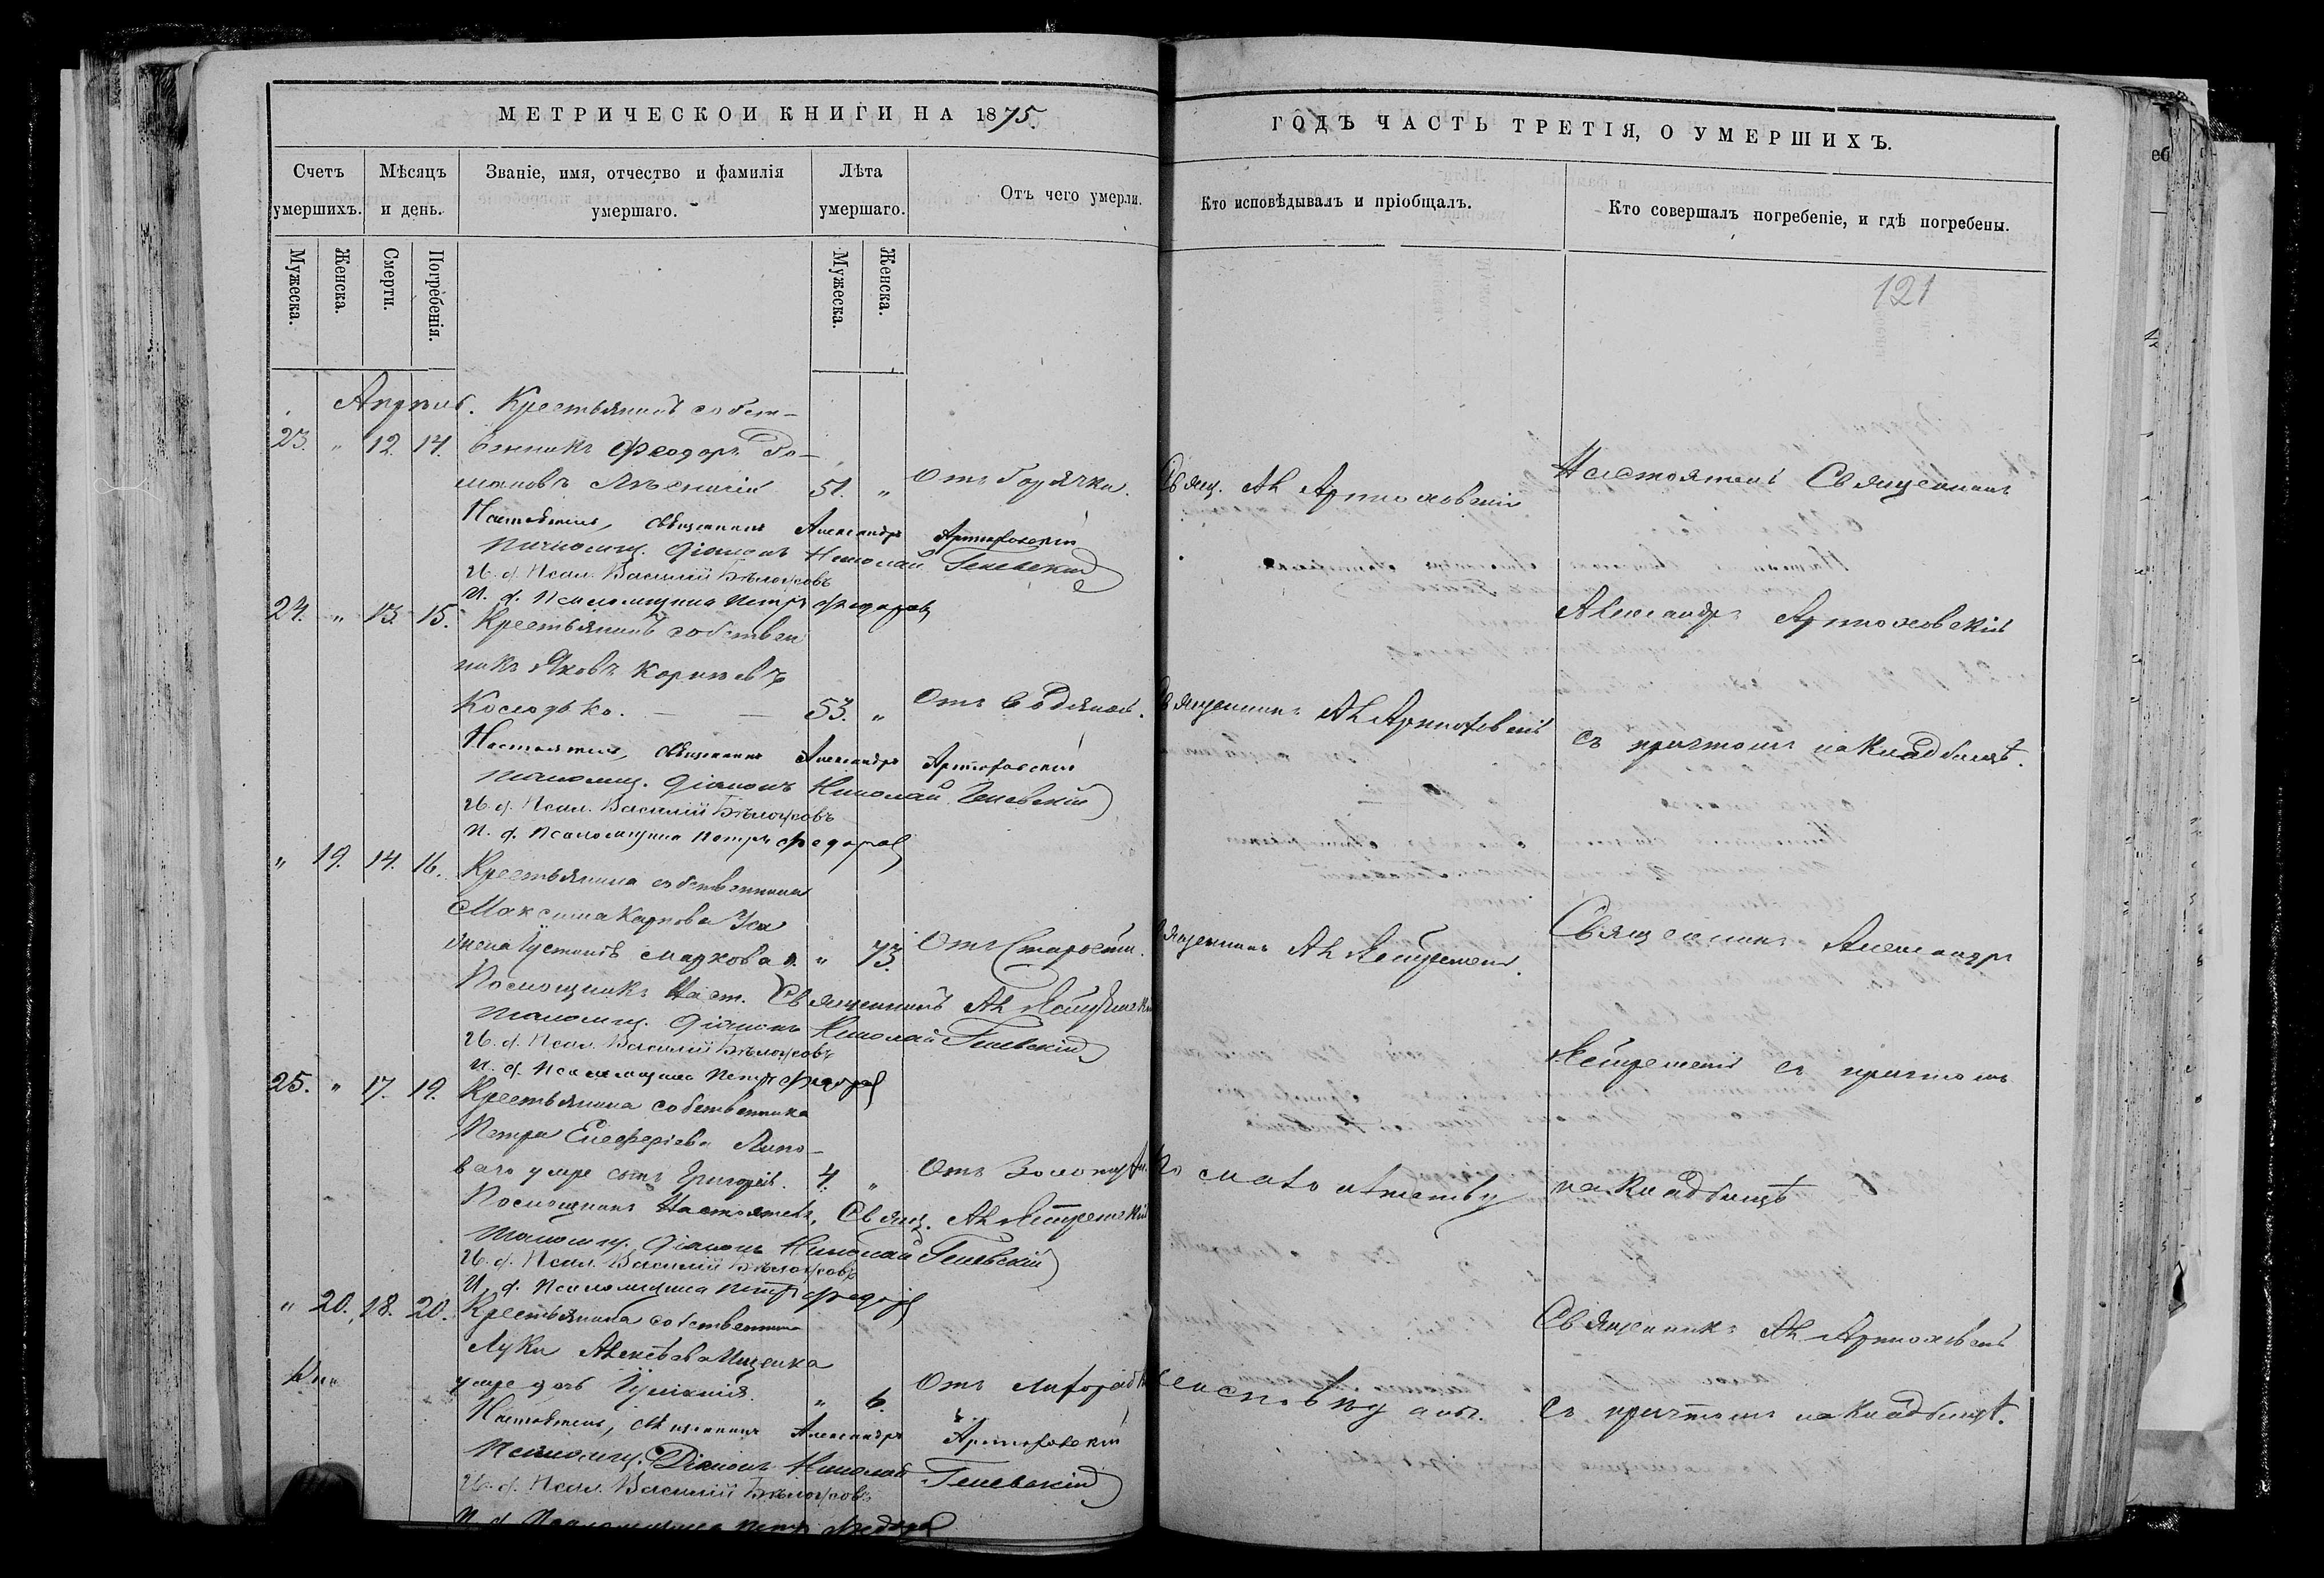 МЕТРИЧЕСКОЙ КНИГИ НА 1875.
Счетъ умершихъ.
Мѣсяцъ и день.
Званіе, имя, отчество и фамилія умершаго.
Лѣта умершаго.
Отъ чего умерли.
Мужеска.
Женска.
Смерти.
Погребенія.
Мужеска.
Женска.
Апрѣль. Крестьянинъ собст-
23. " 12. 14. венникъ Феодоръ До-
51. " Отъ горячки.
Настоятель, Священникъ Александръ Артюховскій
Псаломщ. Діаконъ Николай Геневскій
И. д. Псал. Василій Бѣлоусовъ
И. д. Псаломщика Петръ Федоровъ
24. " 13. 15. Крестьянинъ собствен
никъ Яковъ Корнѣевъ
53. " Отъ водяной.
Настоятель, Священникъ Александръ Артюховскій
Псаломщ. Діаконъ Николай Геневскій
И. д. Псал. Василій Бѣлоусовъ
И. д. Псаломщика Петръ Федоровъ
" 19. 14. 16. Крестьянина собственника
Максима Карпова
Маркова. " 73. Отъ старости.
Помощникъ Наст. Священникъ Ал.
Псаломщ. Діаконъ Николай Геневскій
И. д. Псал. Василій Бѣлоусовъ
И. д. Псаломщика Петръ Федоровъ
25. " 17. 19. Крестьянина собственника
Петра Елефѳріева Липо-
ваго умре сынъ Григорій. 4. " Отъ золотухи.
Помощникъ Настоятеля, Свящ. Ал.
Псаломщ. Діаконъ Николай Геневскій
И. д. Псал. Василій Бѣлоусовъ
И. д. Псаломщика Петръ Федоровъ
" 20. 18. 20. Крестьянина собственника
Луки Алексѣева Ищенка
умре дочь Іуліанія. " 6. Отъ лихорадки
Настоятель, Священникъ Александръ Артюховскій
Псаломщ. Діаконъ Николай Геневскій
И. д. Псал. Василій Бѣлоусовъ
И. д. Псаломщика Петръ Федоровъ
ГОДЪ ЧАСТЬ ТРЕТІЯ, О УМЕРШИХЪ.
Кто исповѣдывалъ и пріобщалъ.
Кто совершалъ погребеніе, и гдѣ погребены.
121
Свящ. Ал. Артюховскій
Настоятель Священникъ
Александръ Артюховскій
Священникъ Ал. Артюховскій
съ причтомъ на кладбищѣ.
Священникъ Ал.
Священникъ Александръ
съ причтомъ
По малолѣтству
на кладбищѣ
Священникъ Ал. Артюховскій
съ причтомъ на кладбищѣ.